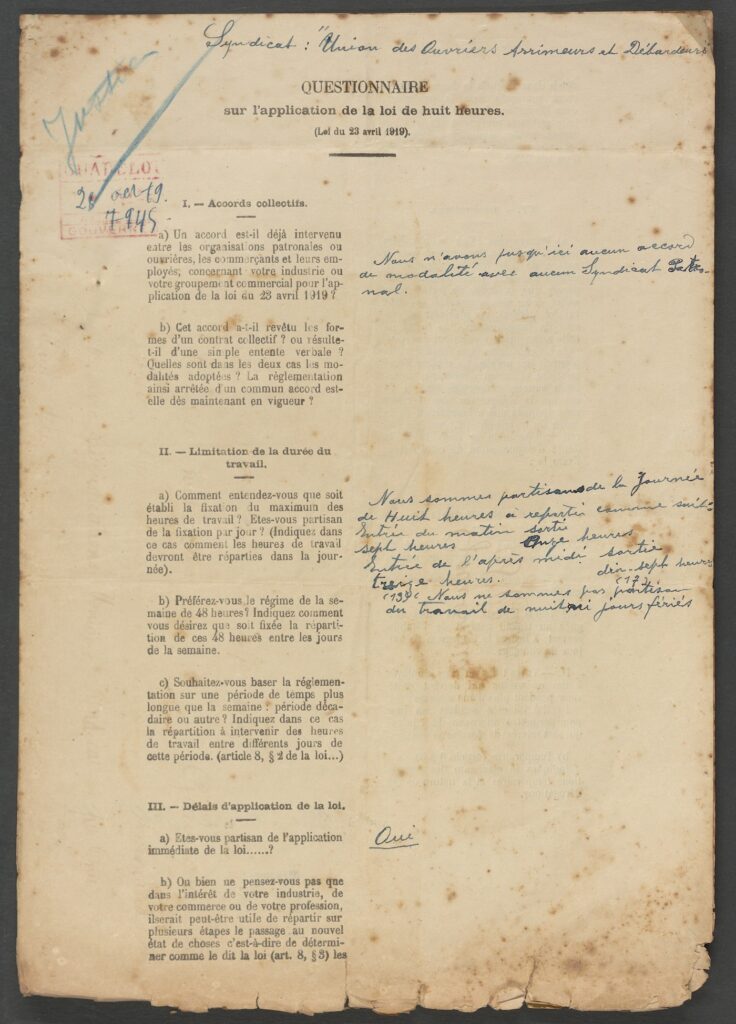 Syndicat : "Union des Ouvriers Arrimeurs et Débardeurs
Justice
QUESTIONNAIRE
sur l'application de la loi de huit heures.
(Loi du 23 avril 1919).
2 oct 19.
7945
I. — Accords collectifs.
a) Un accord est-il déjà intervenu
entre les organisations patronales ou
ouvrières, les commerçants et leurs em-
ployés, concernant votre industrie ou
votre groupement commercial pour l'ap-
plication de la loi du 23 avril 1919 ?
Nous n'avons jusqu'ici aucun accord
de modalité avec aucun Syndicat Patro-
nal.
b) Cet accord a-t-il revêtu les for-
mes d'un contrat collectif ? ou résulte-
t-il d'une simple entente verbale ?
Quelles sont dans les deux cas les mo-
dalités adoptées ? La règlementation
ainsi arrêtée d'un commun accord est-
elle dès maintenant en vigueur ?
II. — Limitation de la durée du
travail.
a) Comment entendez-vous que soit
établi la fixation du maximum des
heures de travail ? Etes-vous partisan
de la fixation par jour ? (Indiquez dans
ce cas comment les heures de travail
devront être réparties dans la jour-
née).
Nous sommes partisans de la Journée
de Huit heures à repartir comme suit :
Entrée du matin sortie
sept heures Onze heures
Entrée de l'après midi sortie
treize heures. dix-sept heures
(13h) (17)
Nous ne sommes pas partisan
du travail de nuit ni jours fériés
b) Préférez-vous le régime de la se-
maine de 48 heures ? Indiquez comment
vous désirez que soit fixée la réparti-
tion de ces 48 heures entre les jours
de la semaine.
c) Souhaitez-vous baser la réglemen-
tation sur une période de temps plus
longue que la semaine : période déca-
daire ou autre ? Indiquez dans ce cas
la répartition à intervenir des heures
de travail entre différents jours de
cette période. (article 8, § 2 de la loi...)
III. — Délais d'application de la loi.
a) Etes-vous partisan de l'application
immédiate de la loi......?
Oui
b) Ou bien ne pensez-vous pas que
dans l'intérêt de votre industrie, de
votre commerce ou de votre profession,
ilserait peut-être utile de répartir sur
plusieurs étapes le passage au nouvel
état de choses c'est-à-dire de détermi-
ner comme le dit la loi (art. 8, § 3) les